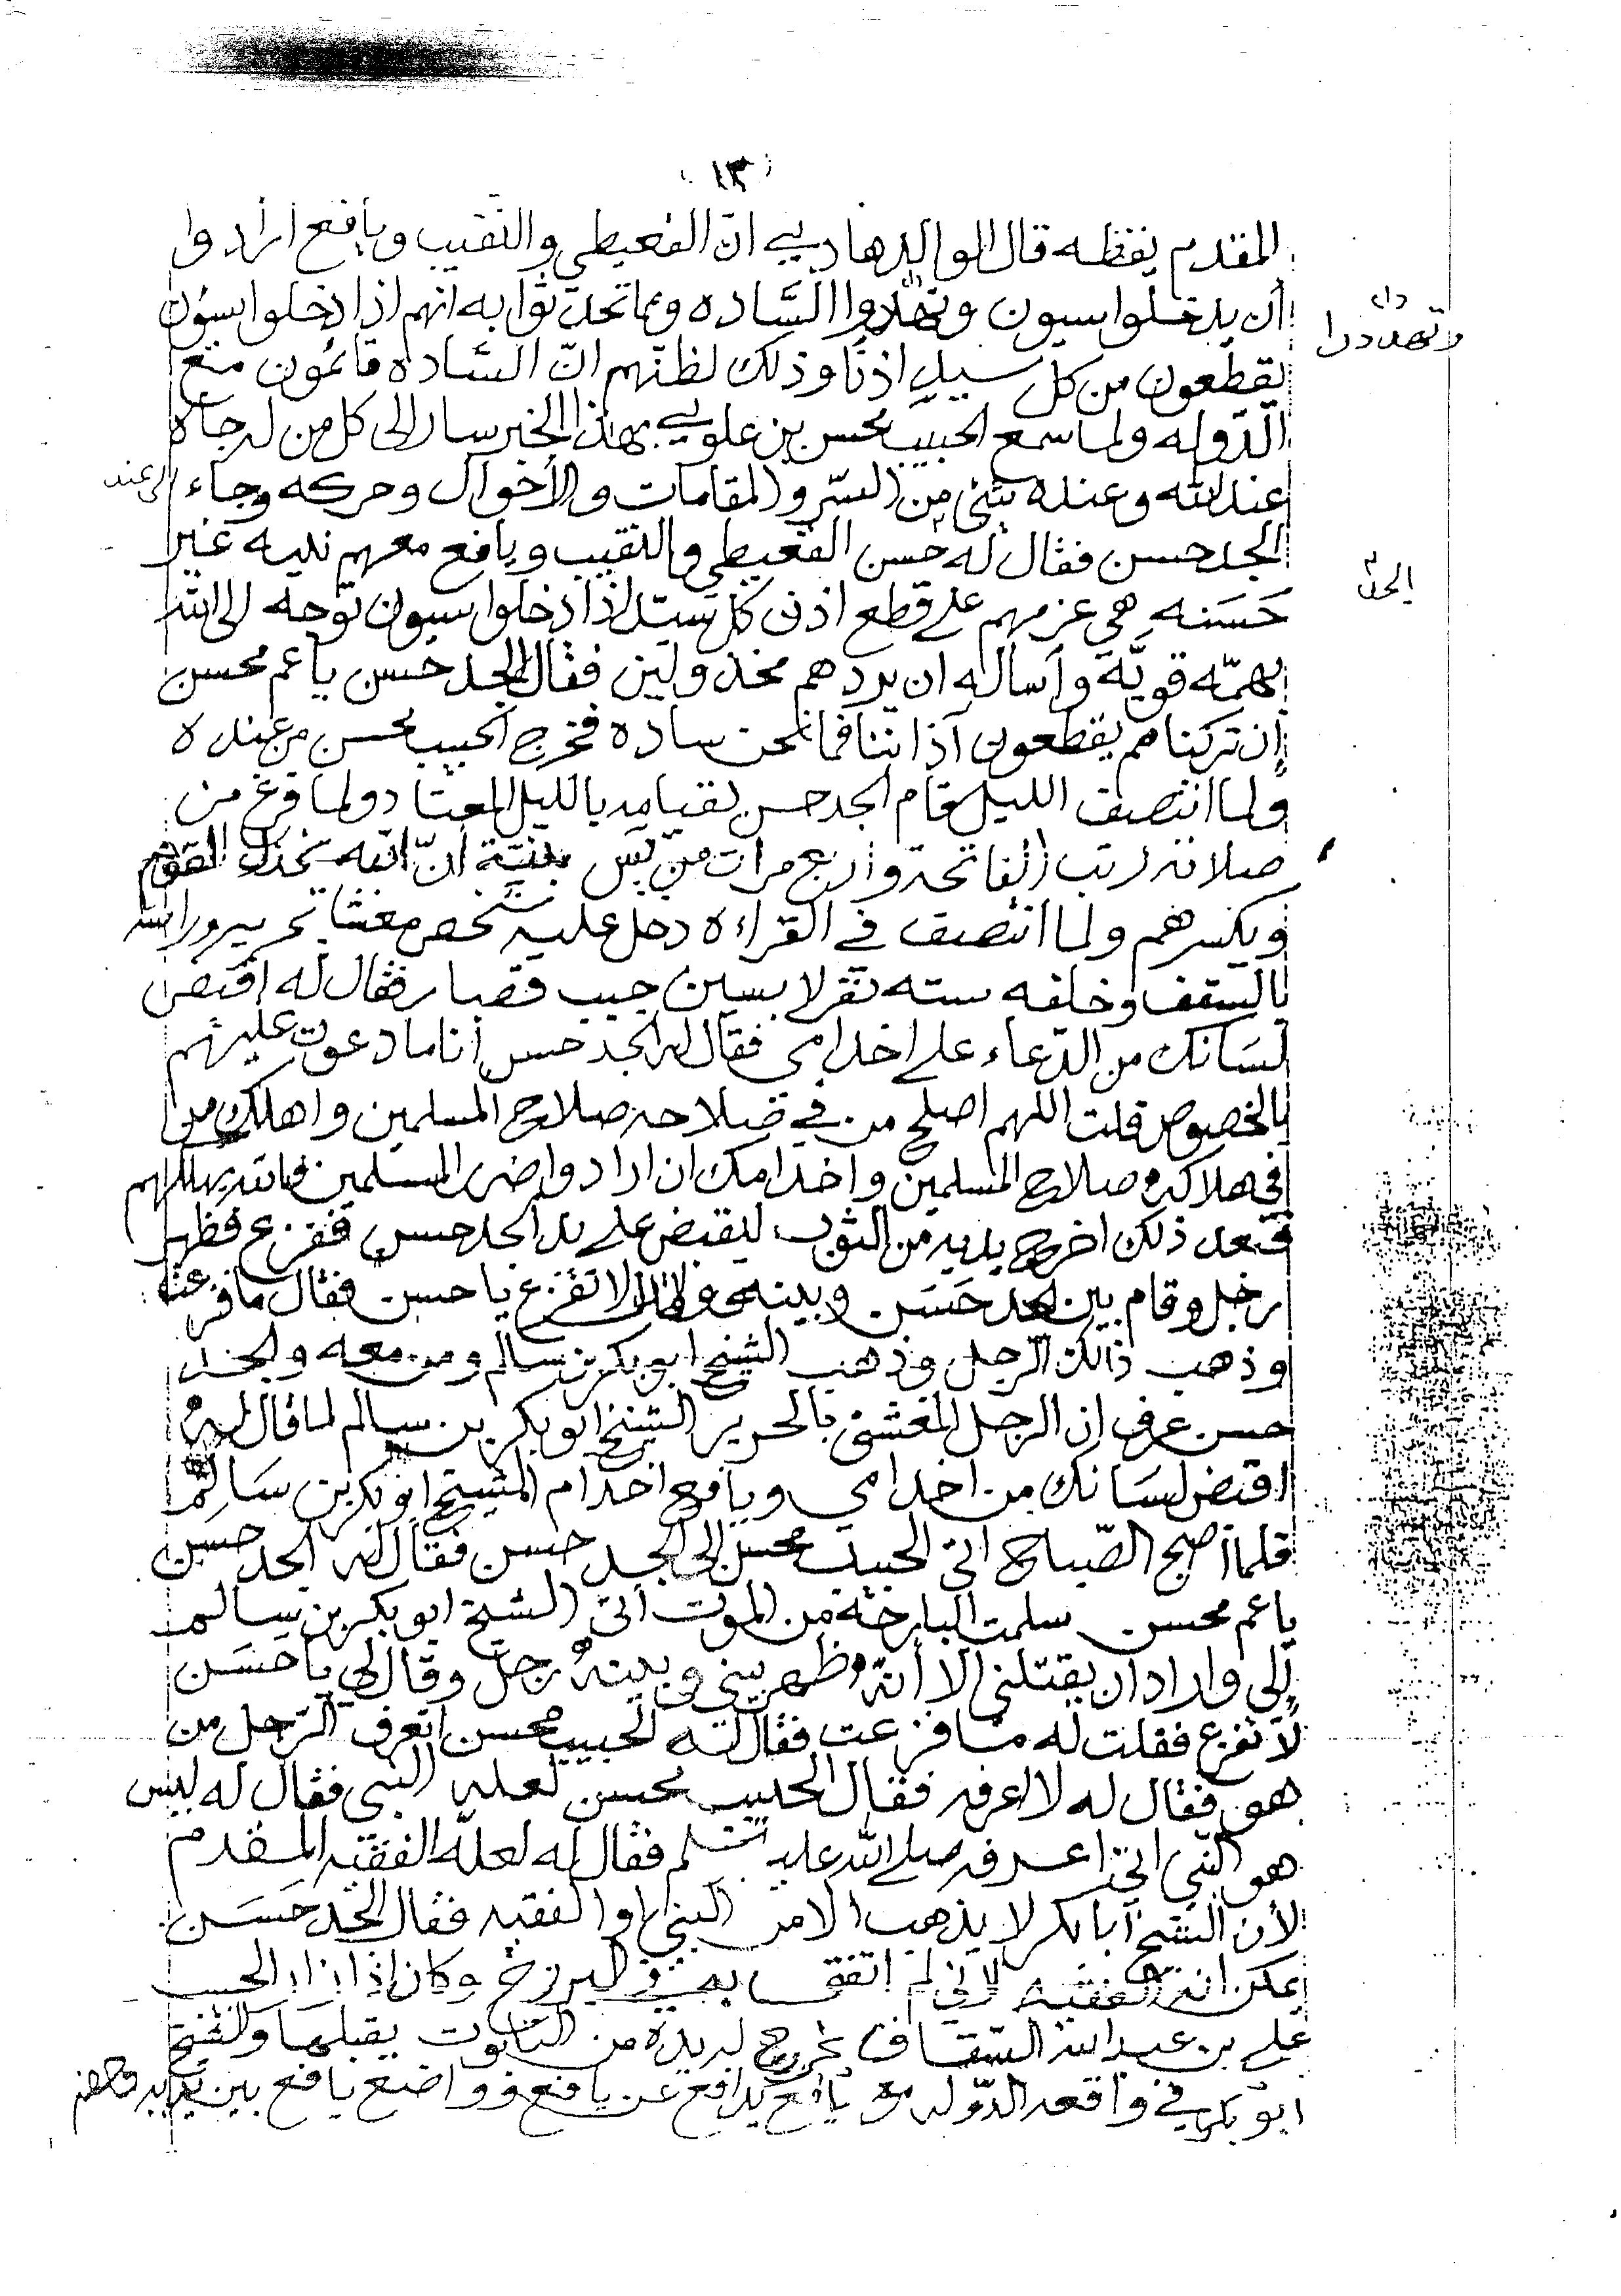 ١٣
المقدم يقظه قال الوالد هادي ان القعيطي والنقيب ويافع أرادوا
أن يدخلوا سيون وتهددوا السّاده ومما تحدثوا به انهم اذا دخلوا سيون
وتهددوا
يقطعون من كل سيد اذنًا وذلك لظنهم انّ السّاده قائمون مع
الدّوله ولما سمع الحبيب محسن بن علوي بهذا الخبر سار الى كل من له جاه
عند الله وعنده شئ من السّر والمقامات والأحوال وحركه وجاء الى عند
الجد حسن فقال له حسن القعيطي والنقيب ويافع معهم نيه غير
حَسَنه هي عزمهم على قطع اذن كل سيد اذا دخلوا سيون توجه الى الله
بهمّه قويّة وأساله ان يردهم مخذولين فقال الجد حسن يا عم محسن
إن تركناهم يقطعون آذاننا فما نحن ساده فخرج الحبيب محسن من عنده
ولما انتصف الليل قام الجد حسن لقيامه بالليل المعتاد ولما فرغ من
صلاته رتب الفاتحة وأربع مرات من يس بنيّة أنّ الله يخذل القوم
ويكسرهم ولما انتصف في القراءه دخل عليه شخص مغشا بحرير وراسه
بالسقف وخلفه سته نفر لابسين جيب قصار فقال له اقبض
لسَانك من الدّعاء على اخدامي فقال له الجد حسن أنا ما دعوت عليهم
بالخصوص قلت اللهم اصلح من في صلاحه صلاح المسلمين واهلك من
في هلاكه صلاح المسلمين واخدامك ان ارادوا ضر المسلمين فالله يهلكهم
فبعد ذلك اخرج يديه من الثوب ليقبض على يد الجد حسن ففزع فظهر
رجل وقام بين الجد حَسَن وبينه وقال لا تفزع يا حسن فقال ما فزعت
وذهب ذالك الرجل وذهب الشيخ ابوبكر بن سالم ومن معه والجد
حسن عرف ان الرجل المغشى بالحرير الشيخ ابوبكر بن سالم لما قال له
اقبض لسَانك من اخدامي ويافع اخدام الشيخ ابوبكر بن سَالم
فلما أصبح الصّباح اتى الحبيب محسن الى الجد حسن فقال له الجد حسن
يا عم محسن سلمت البارحة من الموت أتى الشيخ ابوبكر بن سالم
إلى واراد ان يقتلني الا أنّه ظهر بيني وبينهُ رجل وقال لي يا حَسَن
لا تفزع فقلت له ما فزعت فقال له الحبيب محسن اتعرف الرّجل من
هو فقال له لا اعرفه فقال الحبيب محسن لعله النبي فقال له ليس
هو النّبي انّي اعرفه صلى الله عليه وسلم فقال له لعله الفقيه المقدم
لأن الشيخ أبابكر لا يذهب الا من النبي او الفقيه فقال الجد حَسَن
يمكن انه الفقيه لاني لم اتفق به في البرزخ وكان إذا زار الحبيب
علي بن عبدالله السّقاف تخرج له يده من التابوت يقبلها والشيخ
ابوبكر في واقعه الدّوله مع يافع يدافع عن يافع وواضع يافع بين يديه